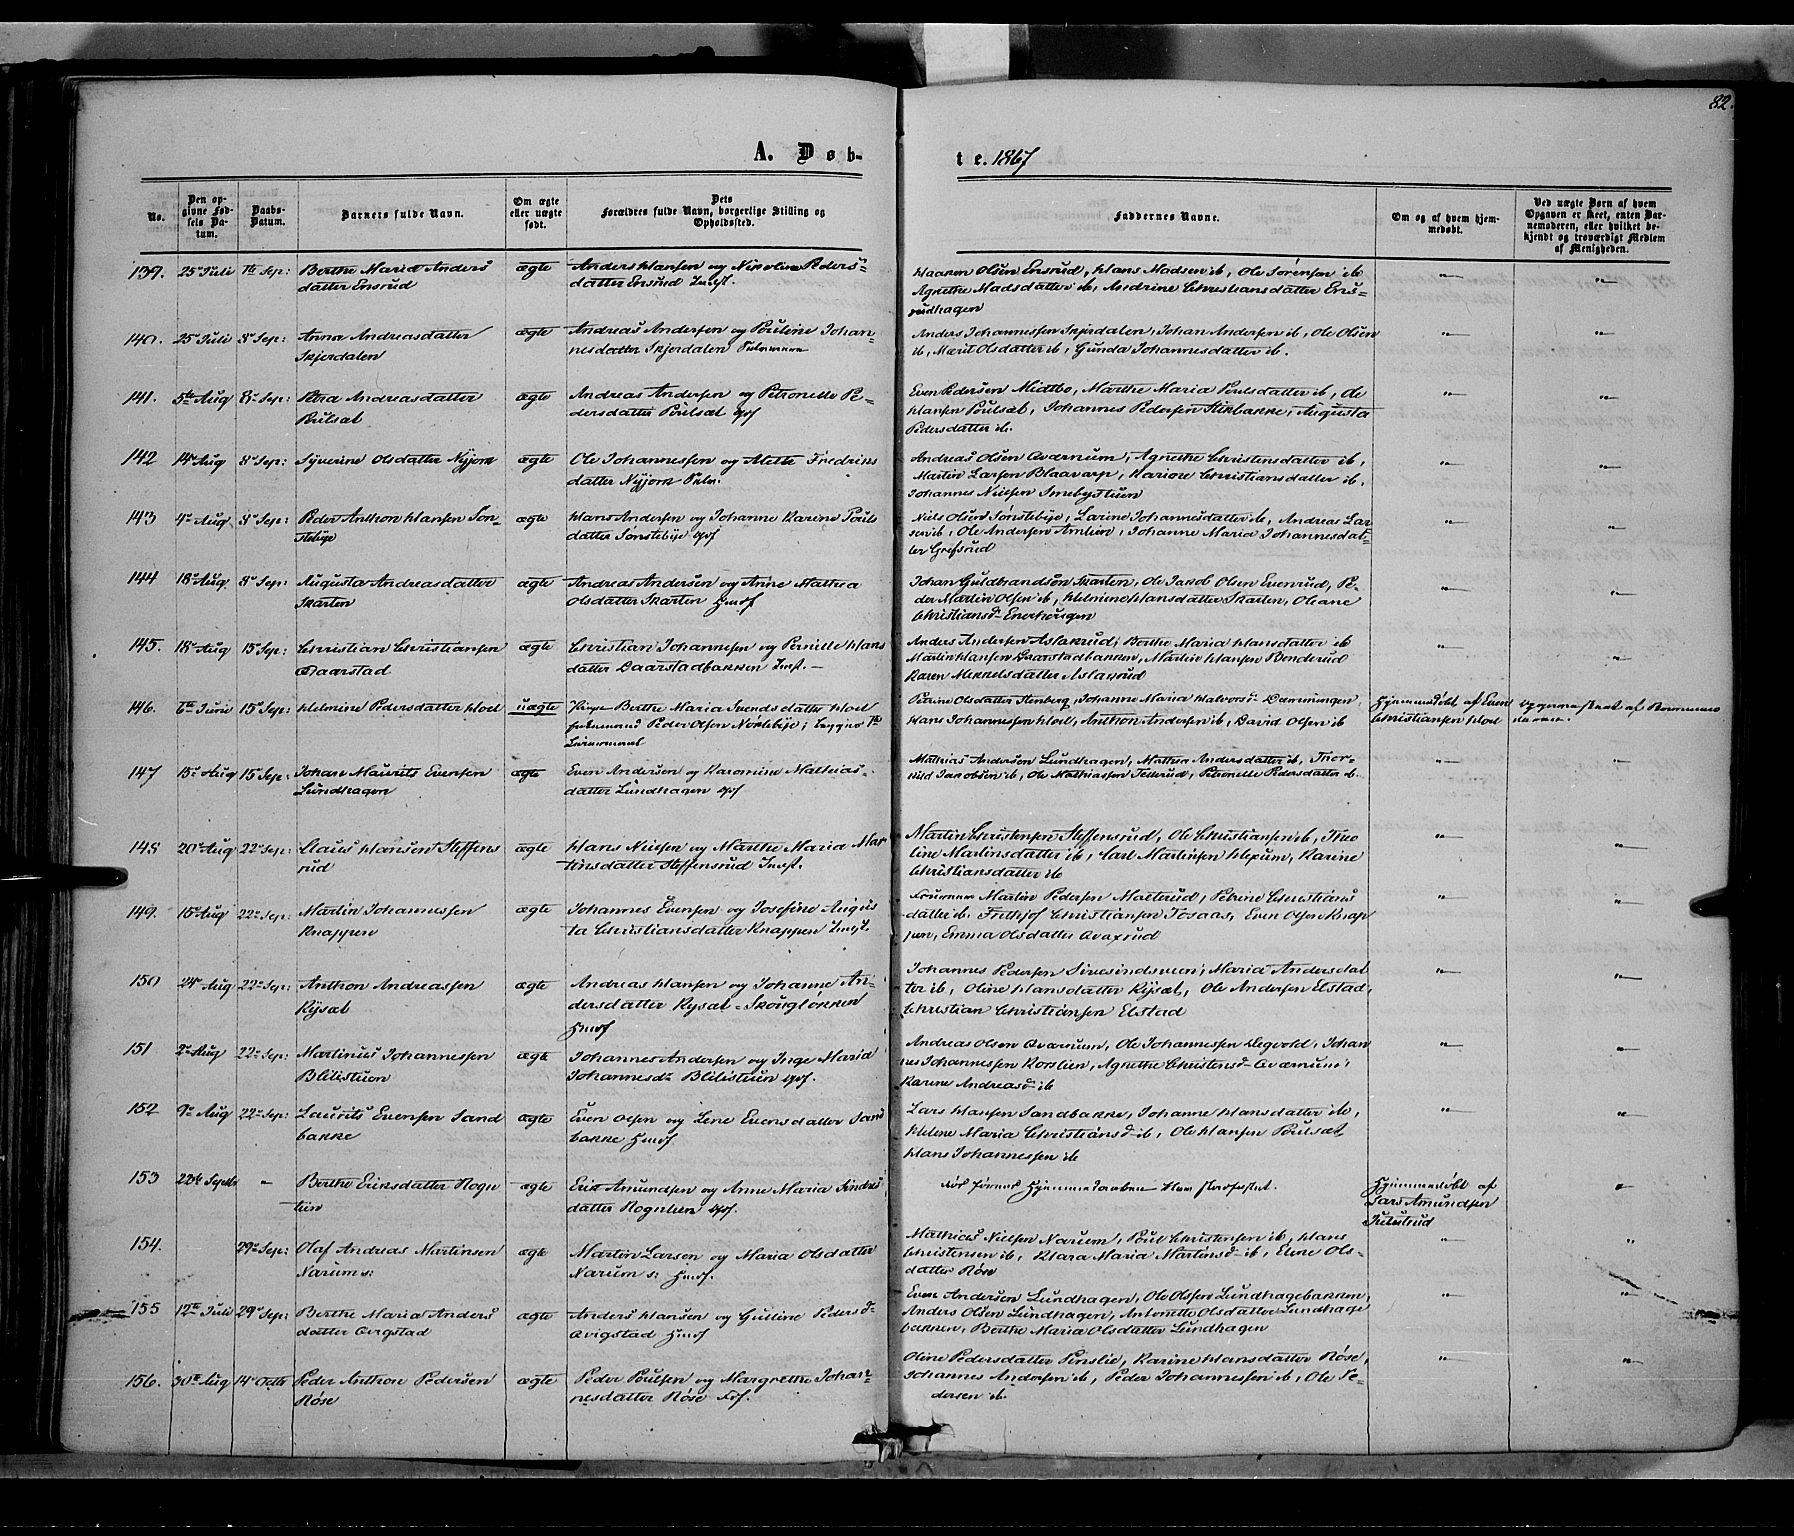 82.
A. Døb-
te. 1867
No.
Den op-
givne Fød-
sels Da-
tum.
Daabs-
Datum.
Barnets fulde Navn.
Om ægte
eller uægte
født.
Dets
Forældres fulde Navn, borgerlige Stilling og
Opholdssted.
Faddernes Navne.
Om og af hvem hjem-
medøbt.
Ved uægte Børn af hvem
Opgaven er skeet, enten Bar-
nemoderen, eller hvilket be-
kjendt og troværdigt Medlem
af Menigheden.
139. 25de Juli 1te Sep: Berthe Maria Anders ægte Anders Hansen og Nicoline Peders-
datter Ensrud datter Ensrud Indst.
Haagen Olsen Ensrud, Hans Madsen ib, Ole Sørensen ib
Agnethe Madsdatter ib, Andrine Christiansdatter Ens-
rudhagen
140. 25de Juli 8de Sep: Anne Andreasdatter ægte Andreas Andersen og Pauline Johan-
Skjerdalen nesdatter Skjerdalen
Anders Johannessen Skjerdalen, Johan Andersen ib, Ole Olsen
ib, Marit Olsdatter ib, Gunda Johannesdatter ib.
141. 5te Aug 8de Sep: Andreasdatter ægte Andreas Andersen og Petronelle Pe-
Poulsæt dersdatter Poulsæt
Even Pedersen Midtbo, Marthe Maria Poulsdatter ib, Ole
Hansen Poulsæt, Johannes Pedersen Stikbakke, Augusta
Pedersdatter ib.
142 14de Aug 8de Sep: Syverine Olsdatter Nyjord ægte Ole Johannessen og Mette Fredriks
datter Nyjord
Andreas Olsen Qværnum, Agnethe Christensdatter ib,
Martin Larsen Blaavarp, Karine Christiansdatter ib,
Johannes Nielsen Smebystuen
143 4de Aug 8de Sep: Peder Anthon Hansen Søn- ægte Hans Andersen og Johanne Karine Pouls
stebye datter Sønstebye
Niels Olsen Sønstebye, Larine Johannesdatter ib, Andreas Lar
sen ib, Ole Andersen Amlien, Johanne Maria Johannesdat-
ter Grefsrud
144 18de Aug 8de Sep: Augusta Andreasdatter ægte Andreas Andersen og Anne Mathea
Skarten Olsdatter Skarten
Johan Guldbrandsen Skarten, Ole Jakob Olsen Evenrud, Pe-
der Martin Olsen ib, Helmine Hansdatter Skarten, Oleane
Christiansd-
145. 18de Aug 15de Sep: Christian Christiansen ægte Christian Johannesen og Pernille Hans
Daarstad datter Daarstadbakken Indst.
Anders Andersen Aslakrud, Berthe Maria Hansdatter ib
Martin Hansen Daarstadbakken, Martin Hansen Bonderud
Karen Mikkelsdatter Aslakrud
146. 6te Juni 15de Sep: Helmine Pedersdatter Hoel uægte Pige Berthe Maria Svendsdatter Hoel
Peder Olsen Nordebye; begges 1te
Leiermaal
Petrine Olsdatter Stenberg, Johanne Maria Halvorsd- Dæmningen
Hans Johannessen Hoel, Anthon Andersen ib, David Olsen ib
Hjemmedøbt af Even
Christiansen Hoel
147 15de Aug 15de Sep: Johan Maurits Evensen ægte Even Andersen og Karomine Mathias-
Lundhagen datter Lundhagen
Mathias Andersen Lundhagen, Mathea Andersdatter ib, Thor-
Jakobsen ib, Ole Mathiassen Tellerud, Petronelle Pedersdatter ib.
148 20de Aug 22de Sep: Claus Hansen Steffens ægte Hans Nielsen og Marthe Maria Mar
rud tinsdatter Steffensrud Indst.
Martin Christensen Steffensrud, Ole Christiansen ib, Theo
line Martinsdatter ib, Carl Martinsen Hexum, Karine
Christiansdatter ib
149. 15de Aug 22de Sep: Martin Johannessen ægte Johannes Evensen og Josefine Augus
Knappen ta Christiansdatter Knappen Indst.
Martin Pedersen Mæhrud, Petrine Christians
datter ib, Frithjof Christiansen Tosaas, Even Olsen Knap
pen, Emma Olsdatter
150 24de Aug 22de Sep: Anthon Andreassen ægte Andreas Hansen og Johanne An-
Rysæt dersdatter Rysæt - Skougløkken
Johannes Pedersen Maria Andersdat
ter ib, Oline Hansdatter Rysæt, Ole Andersen Elstad,
Christian Christiansen Elstad
151 2de Aug 22de Sep: Martinus Johannessen ægte Johannes Andersen og Inge Maria
Blilistuen Johannesd- Blilistuen
Andreas Olsen Qværnum, Ole Johannessen Degvold, Johan
nes Johannessen Korslien, Agnethe Christensd- Qværnum,
Karine Andreasd- ib
152 9de Aug 22de Sep: Laurits Evensen Sand ægte Even Olsen og Lene Evensdatter Sand
bakke bakke
Lars Hansen Sandbakke, Johanne Hansdatter ib,
Helene Maria Christiansd- ib, Ole Hansen Poulsæt,
Hans Johannessen ib
153 22de Septbr Berthe Eriksdatter Rogn ægte Erik Amundsen og Anne Maria
lien datter Rognlien
Hjemmedaaben blev stadfæstet.
Hjemmedøbt af
Lars Amundsen
154. 29de Sep: Olaf Andreas Martinsen ægte Martin Larsen og Maria Olsdatter
Narum s: Narum s:
Mathias Nielsen Narum, Poul Christensen ib, Hans
Christensen ib, Klara Maria Martinsd- ib, Eline Ols-
datter Røse
155 12te Juli 29de Sep: Berthe Maria Anders ægte Anders Hansen og Guline Pedersd-
datter Qvigstad Qvigstad
Even Andersen Lundhagen, Ole Olsen Lundhagebakken,
Anders Olsen Lundhagen, Antonette Olsdatter Lundhage
bakken, Berthe Maria Olsdatter Lundhagen
156. 30te Aug 14de Octbr Peder Anthon Pedersen ægte Peder Poulsen og Margrethe Johan-
Røse nesdatter Røse
Oline Pedersdatter Karine Hansdatter Røse,
Johannes Andersen ib, Peder Johannessen ib, Ole Pe-
dersen ib.